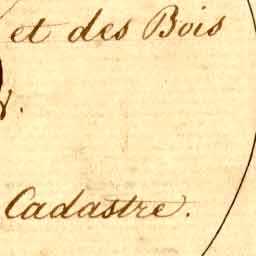 et des Bois
Cadastre.